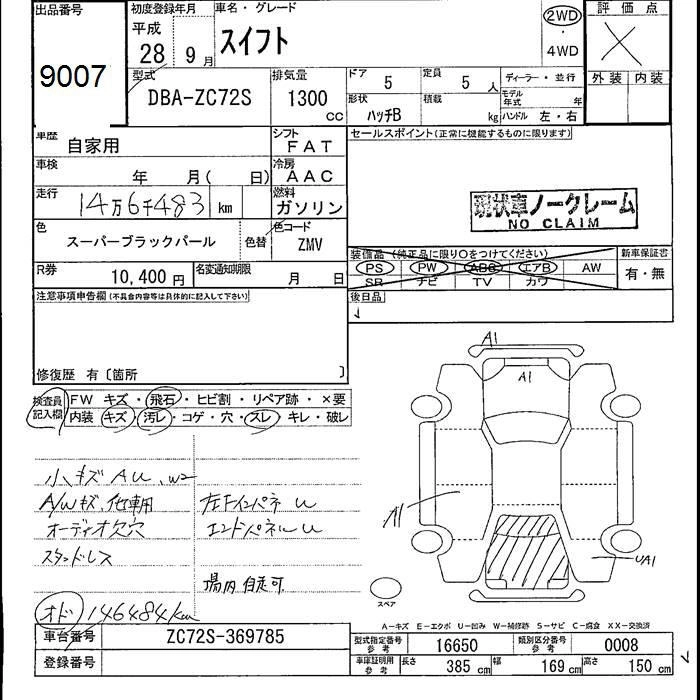 出品番号
9007
初度登録年月
平成
28 9月
車名・グレード
スイフト
2WD
・
4WD
評価点
外装 内装
型式
DBA-ZC72S
排気量
1300
CC
ドア
5
定員
5 人
形状
ハッチB
積載
kg
ディーラー・並行
モデル年式 年
ハンドル 左・右
車歴
自家用
シフト
FAT
車検
年 月( 日)
冷房
AAC
走行
14万6千483 km
燃料
ガソリン
色
スーパーブラックパール
色替
色コード
ZMV
R券
10,400 円
名変通知期限
月 日
セールスポイント(正常に機能するものに限ります)
現状車ノークレーム
NO CLAIM
装備品(純正品に限り○をつけてください)
PS PW ABS エアB AW
SR ナビ TV カワ
新車保証書
有・無
後日品
注意事項申告欄(不具合内容等は具体的に記入して下さい)
修復歴 有〔箇所 〕
検査員記入欄
FW キズ・飛石・ヒビ割・リペア跡・×要
内装 キズ・汚レ・コゲ・穴・スレ・キレ・破レ
小キズ AU、W2
A/Wキズ、他車用
オーディオ欠穴
スタンドレス
左下インパネ U
エンドパネル U
場内自走可
オド 146484km
A1
A1
A1
UA1
スペア
A－キズ E－エクボ U－凹み W－補修跡 S－サビ C－腐食 XX－交換済
車台番号
ZC72S-369785
登録番号
型式指定番号
参考
16650
類別区分番号
参考
0008
車庫証明用
参考
長さ 385 cm
幅 169 cm
高さ 150 cm